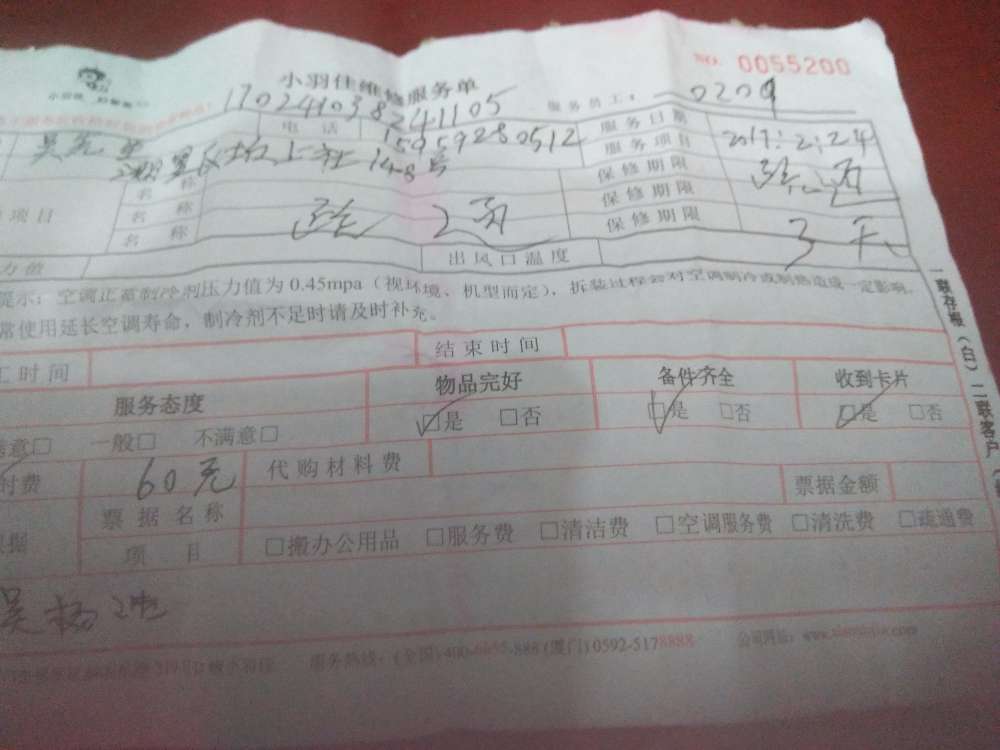 小羽佳维修服务单
NO. 0055200
1702410382411105
服务员工: 0209
电话 15959280512 服务日期 2017:2:24
湖里区 上社148号 服务项目
名称 保修期限
项目 名称 2 保修期限
名称 保修期限 3天
力值 出风口温度
提示: 空调正常制冷剂压力值为0.45mpa (视环境、机型而定), 拆装过程会对空调制冷或制热造成一定影响。
常使用延长空调寿命, 制冷剂不足时请及时补充。
工时间 结束时间
服务态度 物品完好 备件齐全 收到卡片
意□ 一般□ 不满意□ □是 □否 □是 □否 □是 □否
付费 60元 代购材料费
票据名称 票据金额
项目 □搬办公用品 □服务费 □清洁费 □空调服务费 □清洗费 □疏通费
吴杨
服务热线: (全国) 400- -888 (厦门) 0592-5178888 公司网站:
一联存根(白) 二联客户